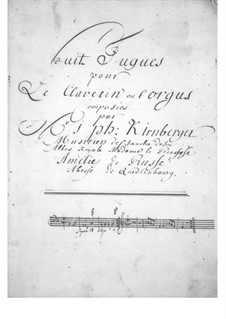 huit Fugues
pour
Le Clavecin ou l'orgus
composées
par
Mr. J. Ph: Kirnberger
Musicien de chambre de
Altes Royale Madame la Princesse
Amelie de Prusse
Abesse de Quedlenbourg.